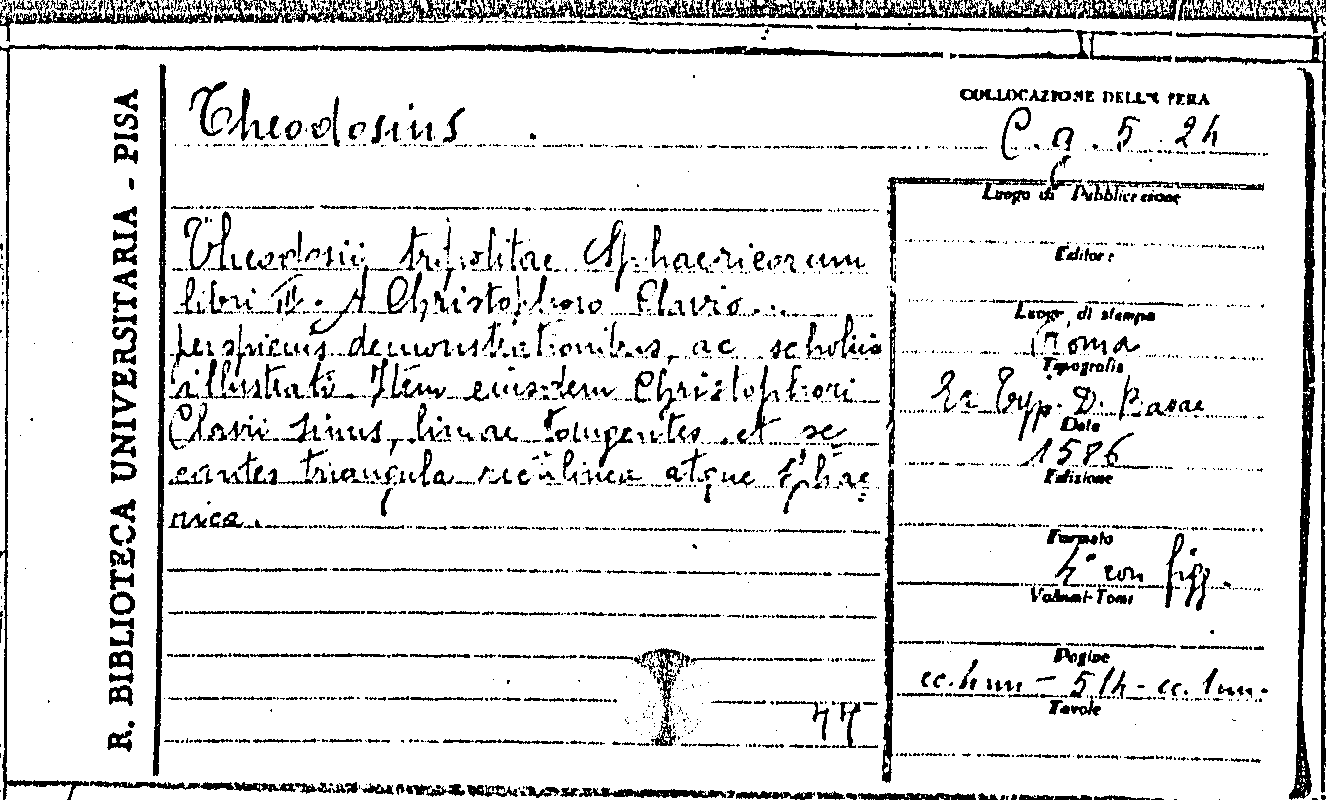 R. BIBLIOTECA UNIVERSITARIA - PISA
Theodosius .
COLLOCAZIONE DELL'OPERA
C. g. 5 24
Theodosii tripolitae Sphaericorum
libri III. A Christophoro Clavio...
perspicuis demonstrationibus, ac scholiis
illustrati. Item eiusdem Christophori
Clavii sinus, lineae tangentes et se=
cantes triangula rectilinea atque sphae=
rica.
Luogo di Pubblicazione
Editore
Luogo di stampa
Roma
Tipografia
Ex Typ. D. Basae
Data
1586
Edizione
Formato
4° con figg.
Volumi-Tomi
Pagine
cc. 4 nn - 514 - cc. 1 nn.
Tavole